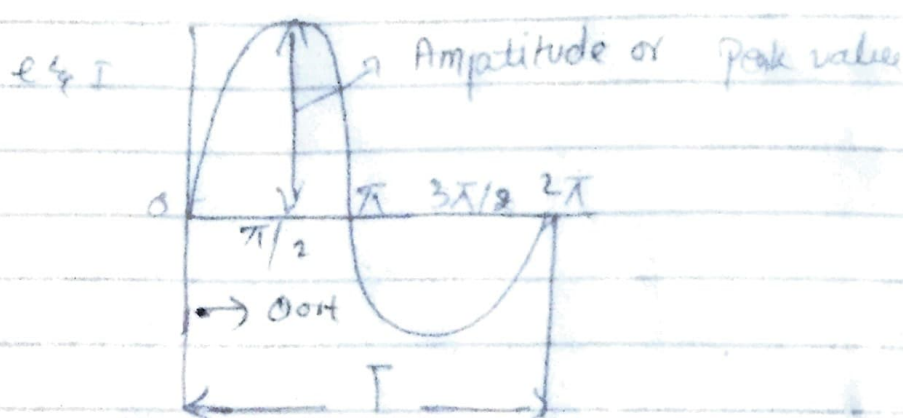 e & I
Ampatitude or Peak value
0 π/2 π 3π/2 2π
→ θ or t
T